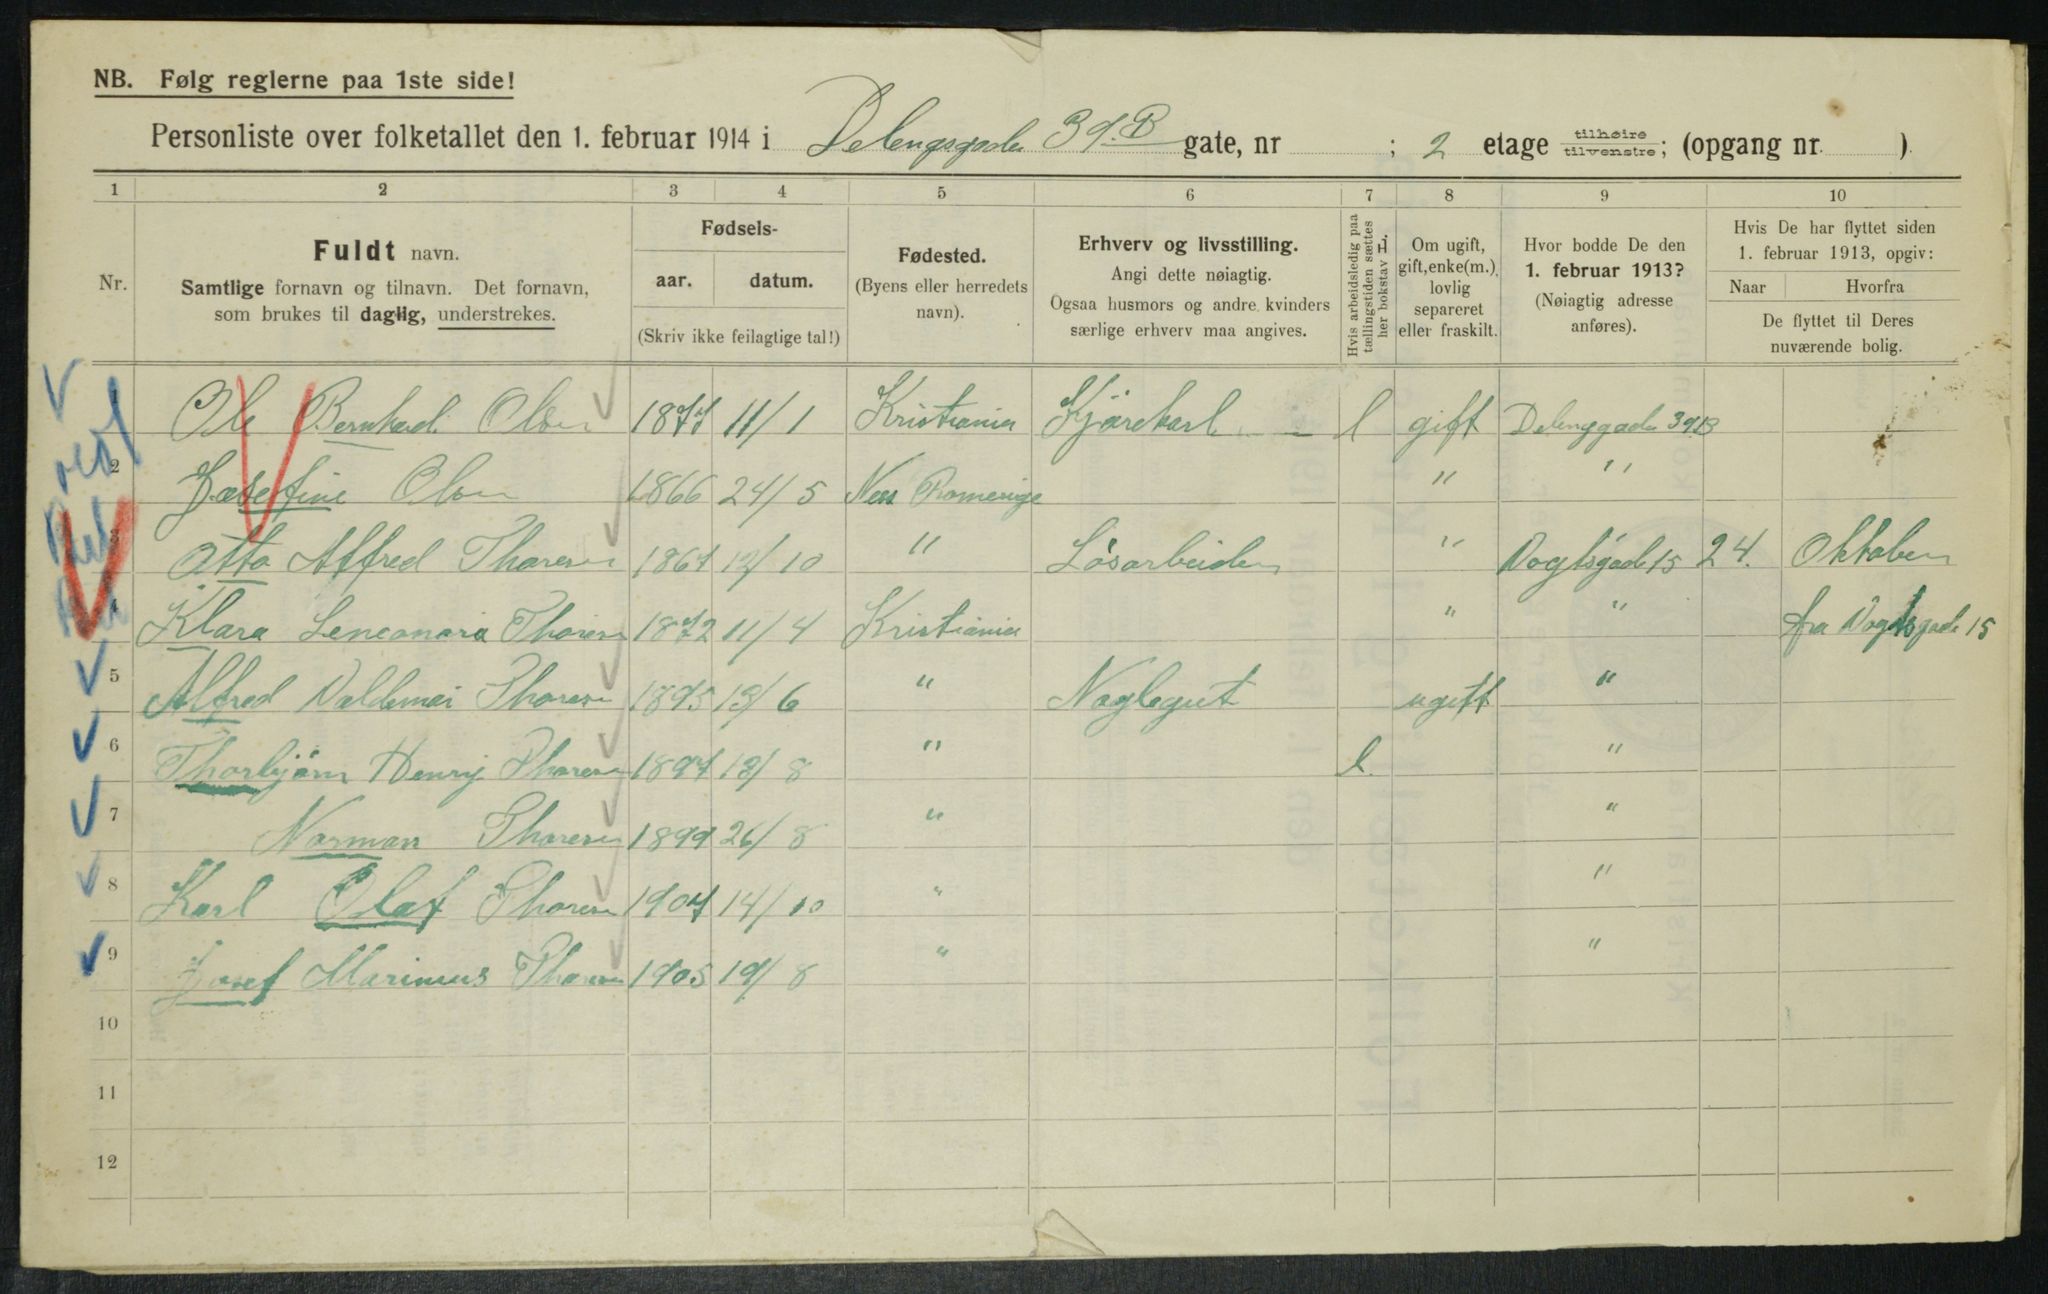 NB. Følg reglerne paa 1ste side!
Personliste over folketallet den 1. februar 1914 i Delengsgade 39.B gate, nr ; 2 etage tilhøire/tilvenstre; (opgang nr. ).
1 2 3 4 5 6 7 8 9 10
Nr.
Fuldt navn.
Samtlige fornavn og tilnavn. Det fornavn,
som brukes til daglig, understrekes.
Fødsels-
aar. datum.
(Skriv ikke feilagtige tal!)
Fødested.
(Byens eller herredets
navn).
Erhverv og livsstilling.
Angi dette nøiagtig.
Ogsaa husmors og andre kvinders
særlige erhverv maa angives.
Hvis arbeidsledig paa
tællingstiden sættes
her bokstav l.
Om ugift,
gift, enke(m.),
lovlig
separeret
eller fraskilt.
Hvor bodde De den
1. februar 1913?
(Nøiagtig adresse
anføres).
Hvis De har flyttet siden
1. februar 1913, opgiv:
Naar Hvorfra
De flyttet til Deres
nuværende bolig.
1 Ole Bernhard Olsen 1877 11/1 Kristiania Kjørekarl l gift Delenggade 39B
2 Josefine Olsen 1866 24/5 Nes Romerige " "
3 Otto Alfred Thoresen 1867 /10 " Løsarbeider " Vogtsgade 15 24. Oktober
4 Klara Leneonora Thoresen 1872 11/4 Kristiania " " fra Vogtsgade 15
5 Alfred Valdemar Thoresen 1895 13/6 " Naglegut ugift "
6 Thorbjørn Henry Thoresen 1897 18/8 " l. "
7 Norman Thoresen 1899 26/8 " "
8 Karl Olaf Thoresen 1907 14/10 " "
9 Josef Marinius Thoresen 1905 19/8 " "
10
11
12